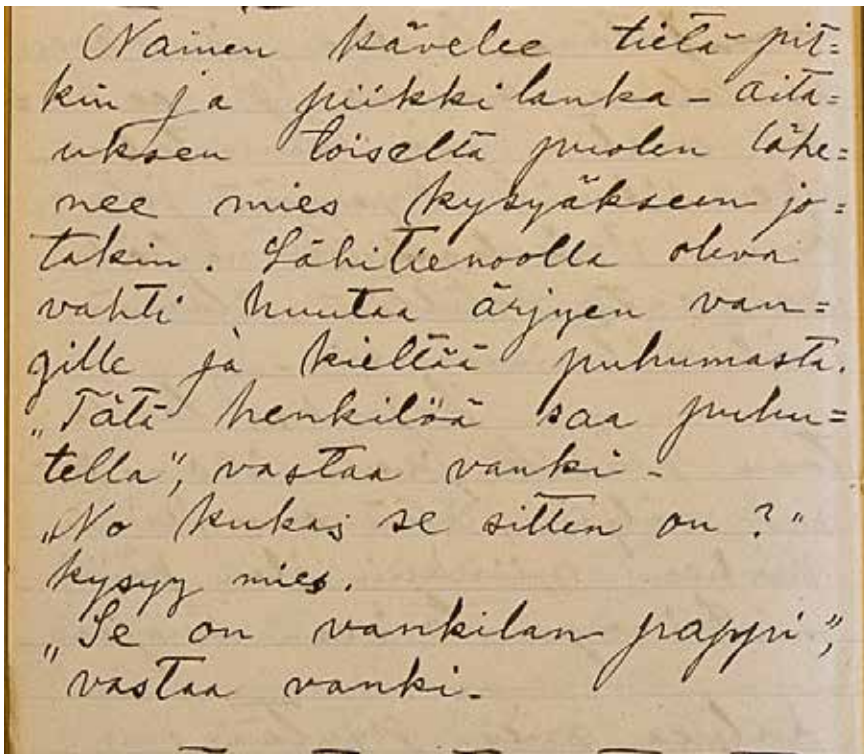 Nainen kävelee tietä pit=
kin ja piikkilanka-aita=
uksen toiselta puolen lähe=
nee mies kysyäkseen jo=
takin. Lähitienoolla oleva
vahti huutaa ärjyen van=
gille ja kieltää puhumasta.
„Tätä henkilöä saa puhu=
tella", vastaa vanki-
„No kukas se sitten on?"
kysyy mies.
„Se on vankilan pappi",
vastaa vanki-